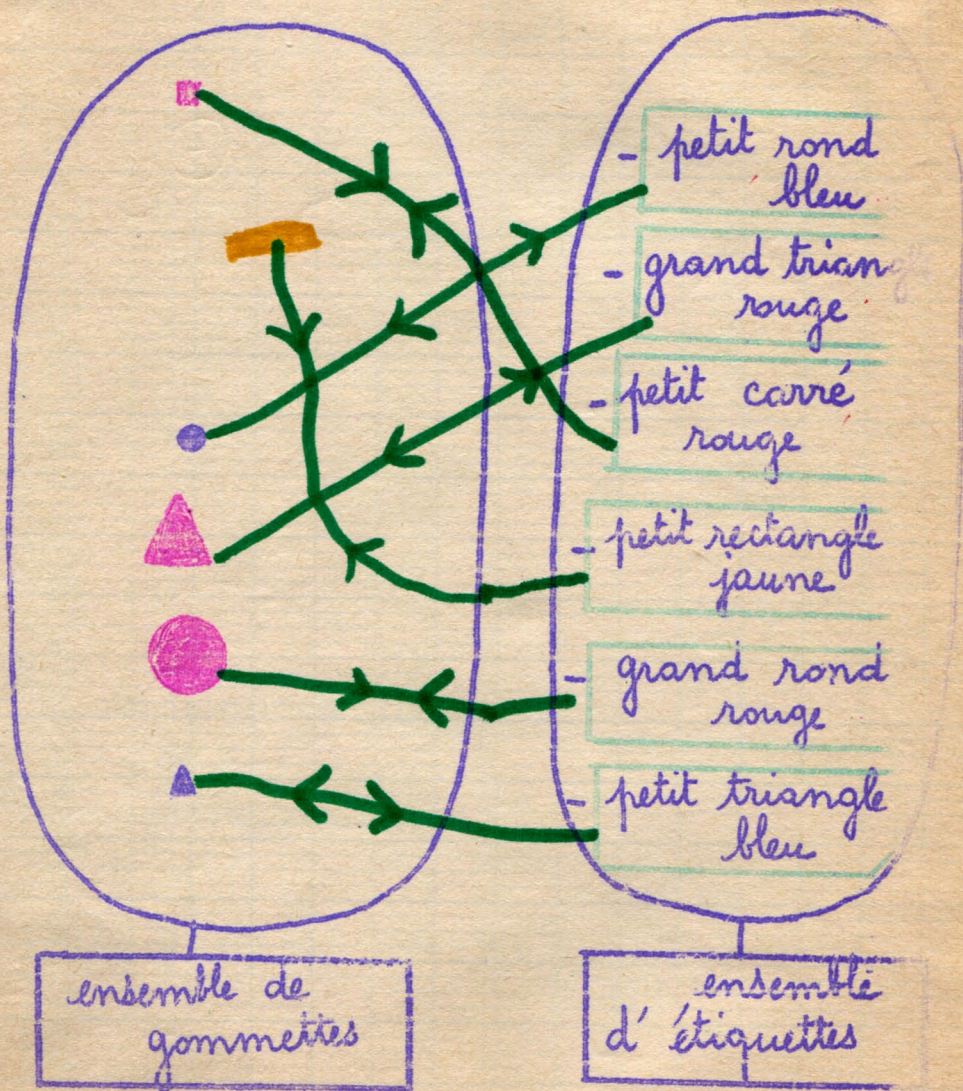 - petit rond
bleu
- grand triangle
rouge
- petit carré
rouge
- petit rectangle
jaune
- grand rond
rouge
- petit triangle
bleu
ensemble de
gommettes
ensemble
d'étiquettes